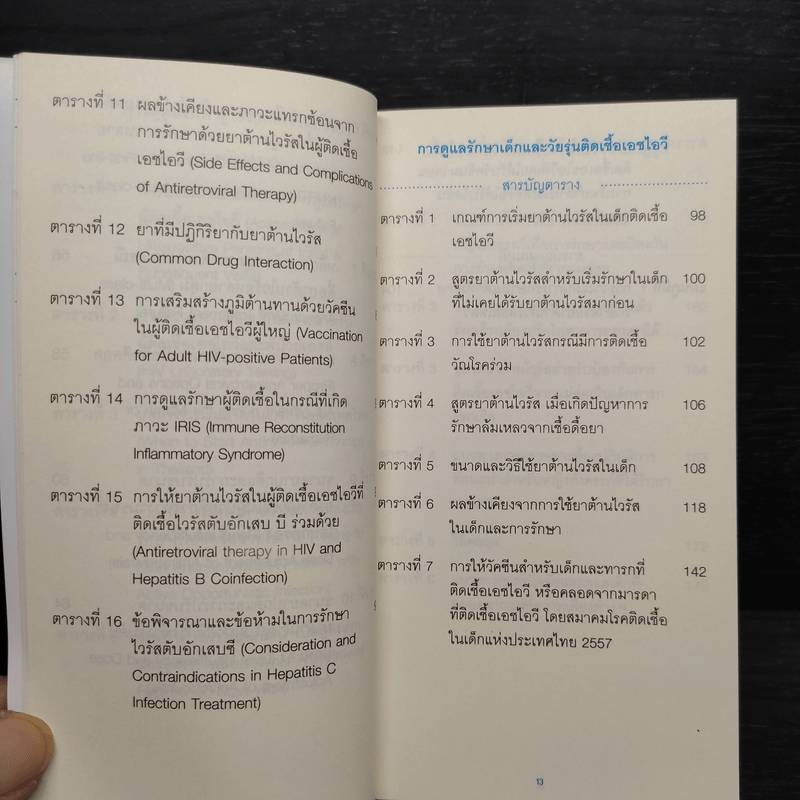 ตารางที่ 11 ผลข้างเคียงและภาวะแทรกซ้อนจาก
การรักษาด้วยยาต้านไวรัสในผู้ติดเชื้อ
เอชไอวี (Side Effects and Complications
of Antiretroviral Therapy)
ตารางที่ 12 ยาที่มีปฏิกิริยากับยาต้านไวรัส
(Common Drug Interaction)
ตารางที่ 13 การเสริมสร้างภูมิต้านทานด้วยวัคซีน
ในผู้ติดเชื้อเอชไอวีผู้ใหญ่ (Vaccination
for Adult HIV-positive Patients)
ตารางที่ 14 การดูแลรักษาผู้ติดเชื้อในกรณีที่เกิด
ภาวะ IRIS (Immune Reconstitution
Inflammatory Syndrome)
ตารางที่ 15 การให้ยาต้านไวรัสในผู้ติดเชื้อเอชไอวีที่
ติดเชื้อไวรัสตับอักเสบ บี ร่วมด้วย
(Antiretroviral therapy in HIV and
Hepatitis B Coinfection)
ตารางที่ 16 ข้อพิจารณาและข้อห้ามในการรักษา
ไวรัสตับอักเสบซี (Consideration and
Contraindications in Hepatitis C
Infection Treatment)
การดูแลรักษาเด็กและวัยรุ่นติดเชื้อเอชไอวี
สารบัญตาราง
ตารางที่ 1 เกณฑ์การเริ่มยาต้านไวรัสในเด็กติดเชื้อ 98
เอชไอวี
ตารางที่ 2 สูตรยาต้านไวรัสสำหรับเริ่มรักษาในเด็ก 100
ที่ไม่เคยได้รับยาต้านไวรัสมาก่อน
ตารางที่ 3 การใช้ยาต้านไวรัสกรณีมีการติดเชื้อ 102
วัณโรคร่วม
ตารางที่ 4 สูตรยาต้านไวรัส เมื่อเกิดปัญหาการ 106
รักษาล้มเหลวจากเชื้อดื้อยา
ตารางที่ 5 ขนาดและวิธีใช้ยาต้านไวรัสในเด็ก 108
ตารางที่ 6 ผลข้างเคียงจากการใช้ยาต้านไวรัส 118
ในเด็กและการรักษา
ตารางที่ 7 การให้วัคซีนสำหรับเด็กและทารกที่ 142
ติดเชื้อเอชไอวี หรือคลอดจากมารดา
ที่ติดเชื้อเอชไอวี โดยสมาคมโรคติดเชื้อ
ในเด็กแห่งประเทศไทย 2557
13